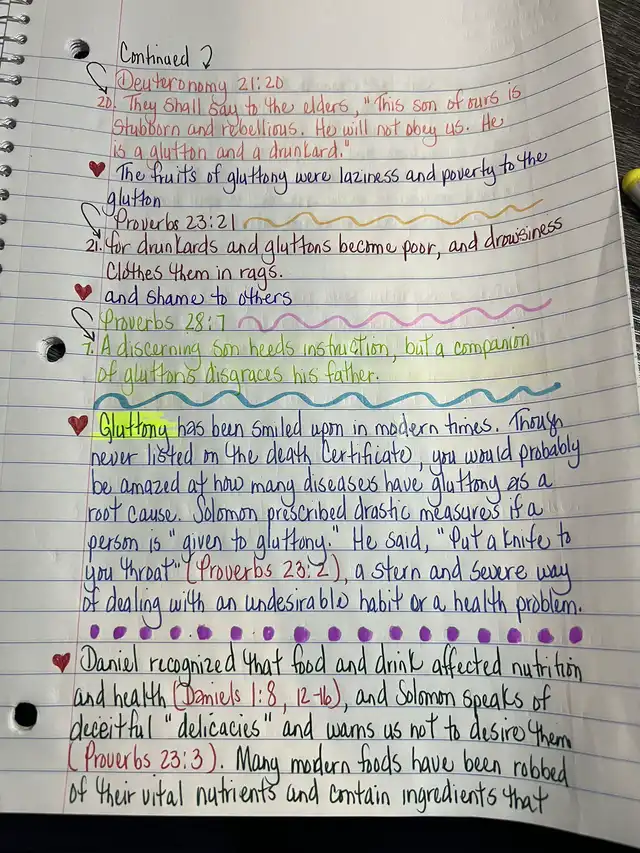 Continued
Deuteronomy 21:20
20. They shall say to the elders, "This son of ours is
stubborn and rebellious. He will not obey us. He
is a glutton and a drunkard."
The fruits of gluttony were laziness and poverty to the
glutton
Proverbs 23:21
21. for drunkards and gluttons become poor, and drowsiness
clothes them in rags.
and shame to others
Proverbs 28:7
7. A discerning son heeds instruction, but a companion
of gluttons disgraces his father.
Gluttony has been smiled upon in modern times. Though
never listed on the death certificate, you would probably
be amazed at how many diseases have gluttony as a
root cause. Solomon prescribed drastic measures if a
person is "given to gluttony." He said, "Put a knife to
you throat" (Proverbs 23:2), a stern and severe way
of dealing with an undesirable habit or a health problem.
Daniel recognized that food and drink affected nutrition
and health (Daniels 1:8, 12-16), and Solomon speaks of
deceitful "delicacies" and warns us not to desire them
(Proverbs 23:3). Many modern foods have been robbed
of their vital nutrients and contain ingredients that